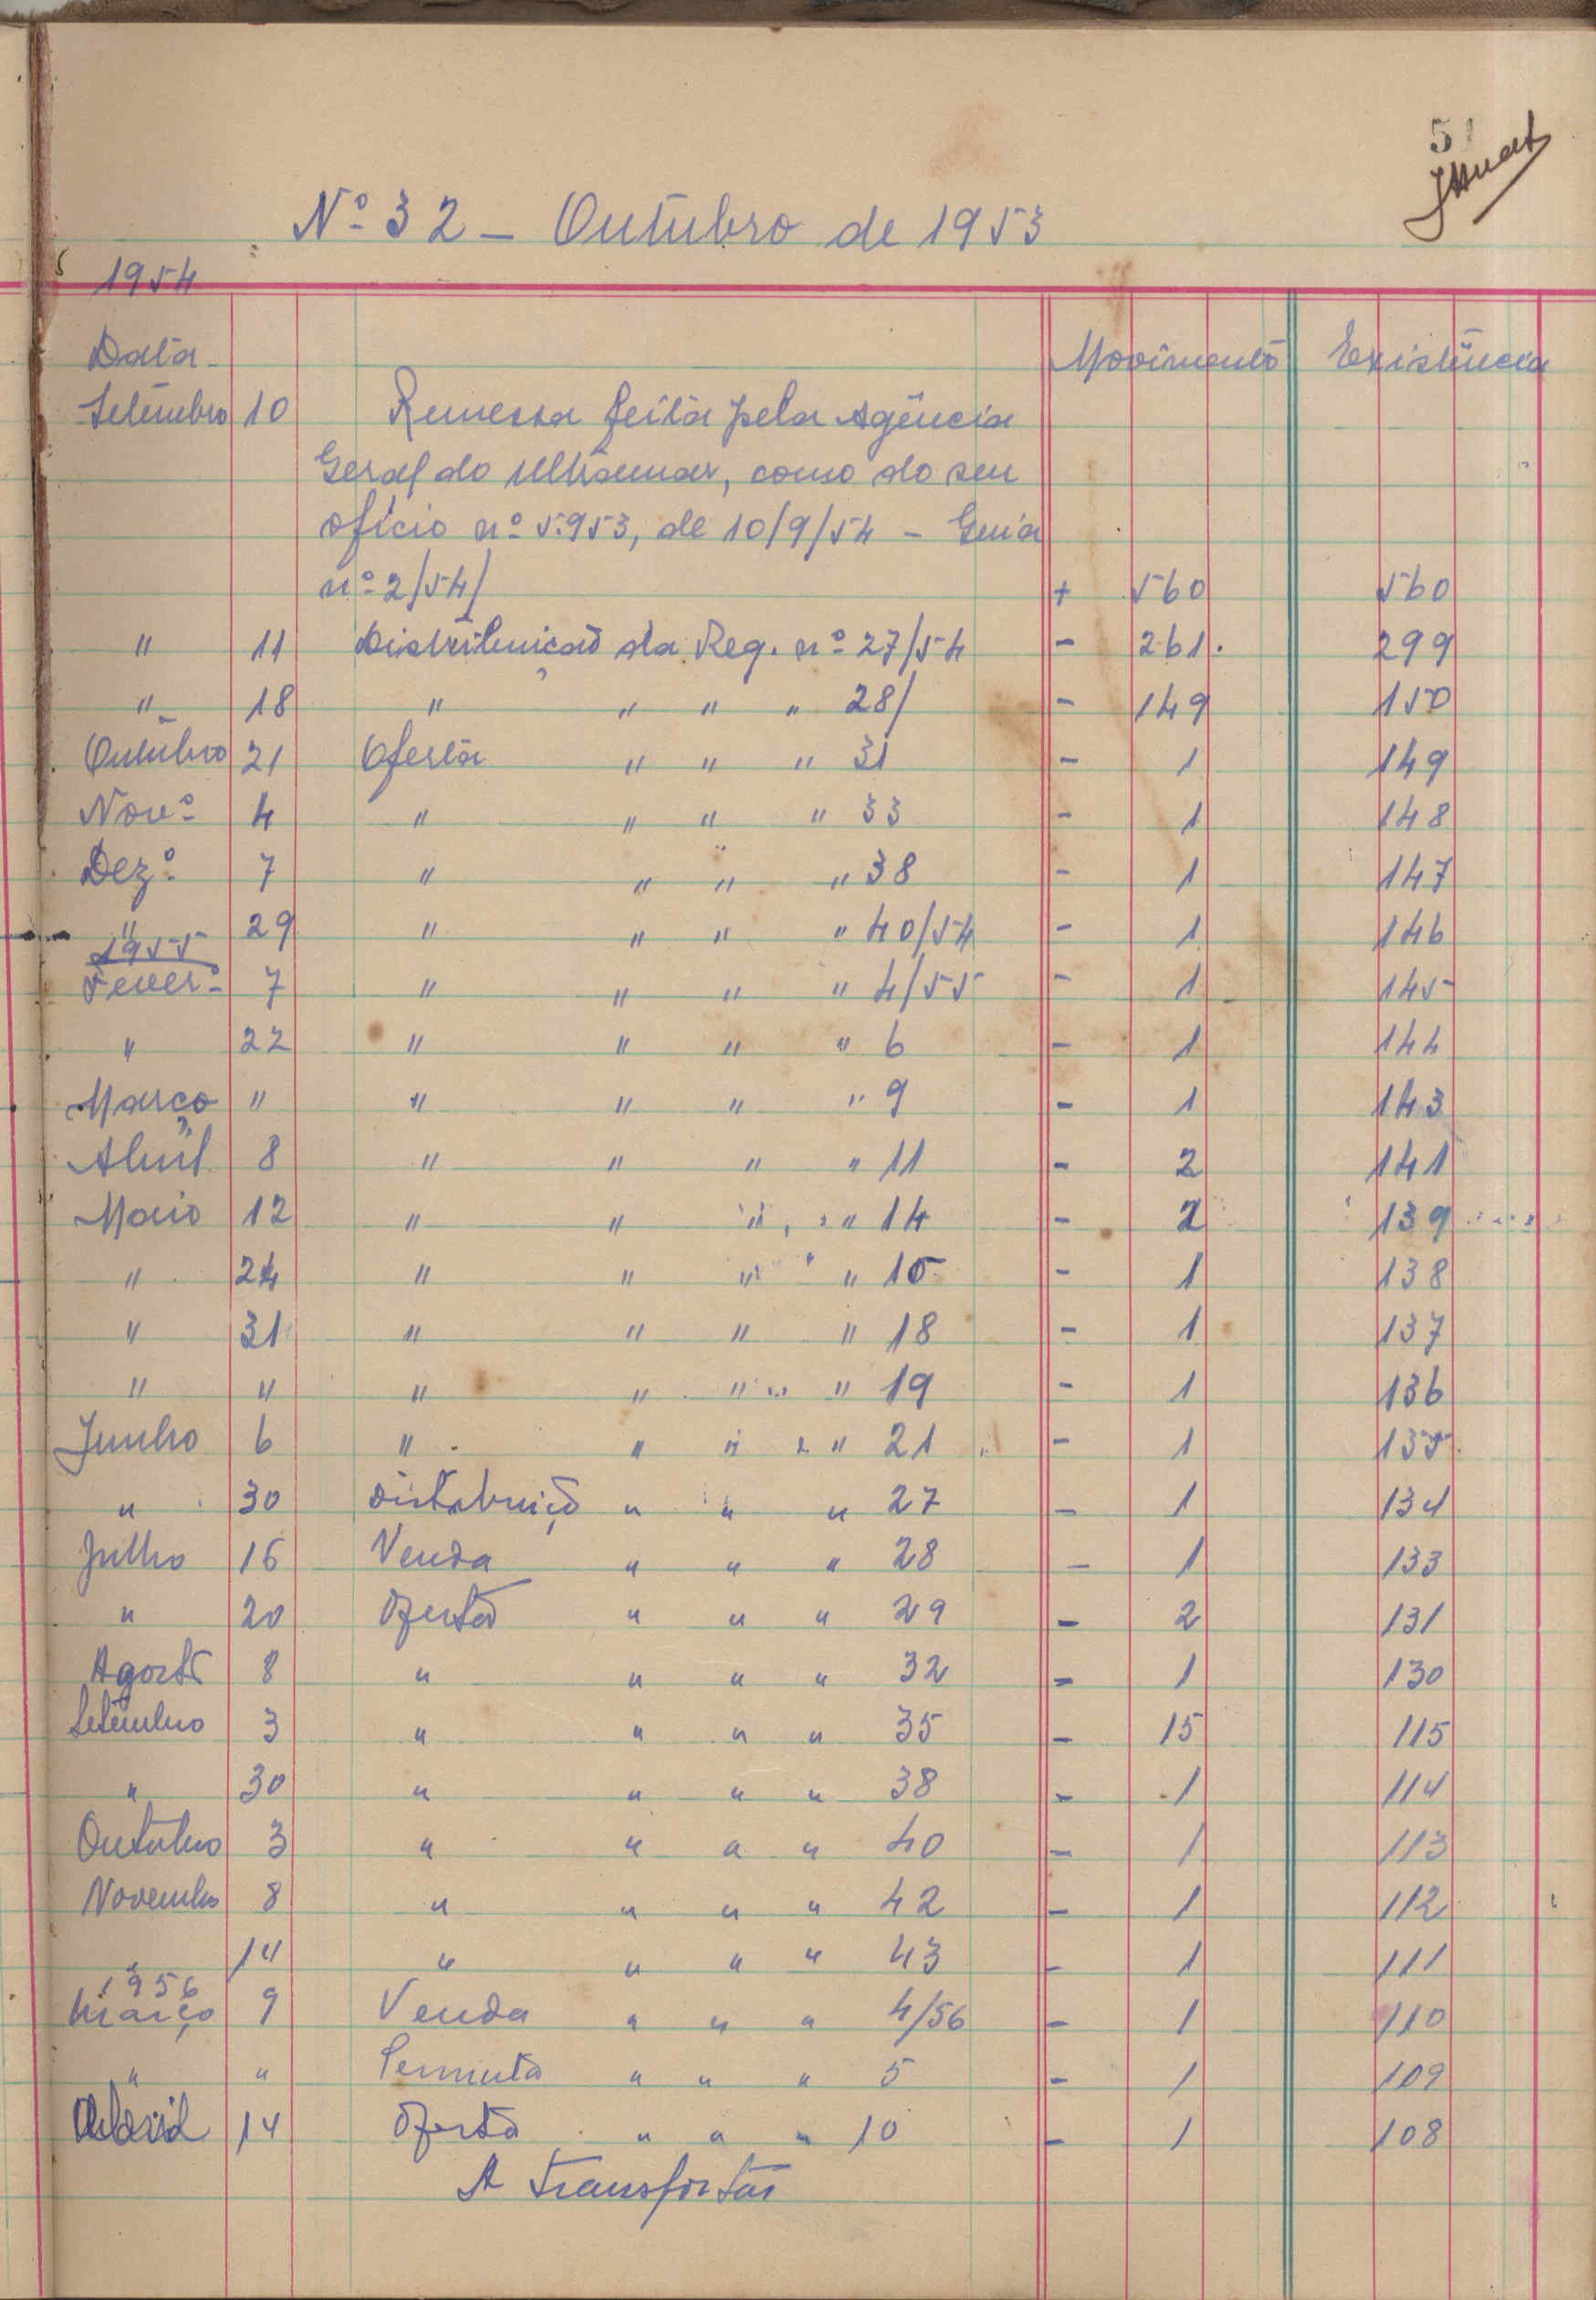 51
Nº 32 — Outubro de 1953
1954
Data Movimento Existência
Setembro 10 Remessa feita pela Agência
Geral do Ultramar, como do seu
ofício nº 5.953, de 10/9/54 — Guia
nº 2/54/ + 560 560
" 11 Distribuição da Req. nº 27/54 - 261. 299
" 18 " " " " 28/ - 149 150
Outubro 21 Oferta " " " 31 - 1 149
Novº 4 " " " " 33 - 1 148
Dezº 7 " " " " 38 - 1 147
" 29 " " " " 40/54 - 1 146
1955
Feverº 7 " " " " 4/55 - 1 145
" 22 " " " " 6 - 1 144
Março " " " " " 9 - 1 143
Abril 8 " " " " 11 - 2 141
Maio 12 " " " " 14 - 2 139
" 24 " " " " 15 - 1 138
" 31 " " " " 18 - 1 137
" " " " " " 19 - 1 136
Junho 6 " " " " 21 - 1 135
" 30 Distribuiçõ " " " 27 - 1 134
Julho 16 Venda " " " 28 - 1 133
" 20 Oferta " " " 29 - 2 131
Agosto 8 " " " " 32 - 1 130
Setembro 3 " " " " 35 - 15 115
" 30 " " " " 38 - 1 114
Outubro 3 " " " " 40 - 1 113
Novembro 8 " " " " 42 - 1 112
" 14 " " " " 43 - 1 111
1956
Março 9 Venda " " " 4/56 - 1 110
" " Permuta " " " 5 - 1 109
Abril 14 Oferta " " " 10 - 1 108
A transportar